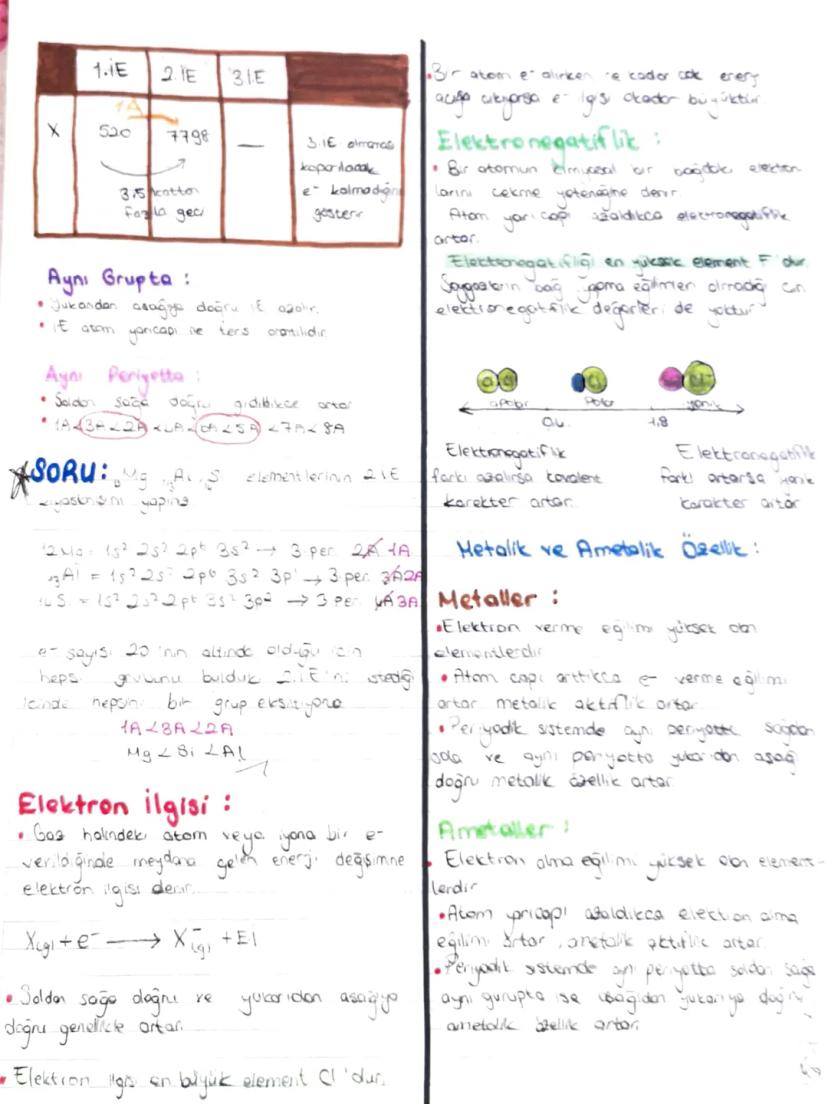 1.İE 2.İE 3.İE
1A
X 520 7798 —
3.İE olmaması
koparılacak
e- kalmadığını
gösterir
3,5 kattan
fazla geçi
Aynı Grupta :
• Yukarıdan aşağıya doğru İE azalır.
• İE atom yarıçapı ile ters orantılıdır.
Aynı Periyotta :
• Soldan sağa doğru gidildikce artar
• 1A<3A<2A<4A<6A<5A<7A<8A
SORU: Mg 13Al S elementlerinin 2.İE
kıyaslamasını yapınız
12Mg: 1s² 2s² 2p⁶ 3s² → 3.per. 2A 1A
13Al = 1s² 2s² 2p⁶ 3s² 3p¹ → 3.per. 3A 2A
14Si = 1s² 2s² 2p⁶ 3s² 3p² → 3.per. 4A 3A
e- sayısı 20'nin altında olduğu için
hepsi grubunu bulduk 2.İE'ni istediği
icinde hepsini bir grup eksiltiyoruz
1A<3A<2A
Mg<Si<Al
Elektron ilgisi :
• Gaz halindeki atom veya iyona bir e-
verildiğinde meydana gelen enerji değişimne
elektron ilgisi denir.
X(g) + e- → X-(g) + Eİ
• Soldan sağa doğru ve yukarıdan aşağıya
doğru genellikle artar.
• Elektron ilgisi en büyük element Cl 'dur.
• Bir atom e- alırken ne kadar cok enerji
açığa cıkıyorsa e- ilgisi okadar büyüktür.
Elektronegatiflik :
• Bir atomun kimyasal bir bağdaki elektron-
larını cekme yeteneğine denir.
Atom yarı capı azaldıkca elektronegatiflik
artar.
Elektronegatifliği en yüksek element F 'dur.
Soygazların bağ yapma eğilimleri olmadığı için
elektronegatiflik değerleri de yoktur
apolar Polar iyonik
0,4 1,8
Elektronegatiflik
farkı azalırsa kovalent
karakter artar.
Elektronegatiflik
farkı artarsa iyonik
karakter artar
Metalik ve Ametalik Özellik :
Metaller :
• Elektron verme eğilimi yüksek olan
elementlerdir
• Atom capı arttıkca e- verme eğilimi
artar metalik aktiflik artar.
• Periyodik sistemde aynı periyotta sağdan
sola ve aynı periyotta yukarıdan aşağı
doğru metalik özellik artar.
Ametaller :
• Elektron alma eğilimi yüksek olan element-
lerdir
• Atom yarıcapı azaldıkca elektron alma
eğilimi artar, ametalik aktiflik artar.
• Periyodik sistemde aynı periyotta soldan sağa
aynı gurupta ise aşağıdan yukarıya doğru
ametalik özellik artar.